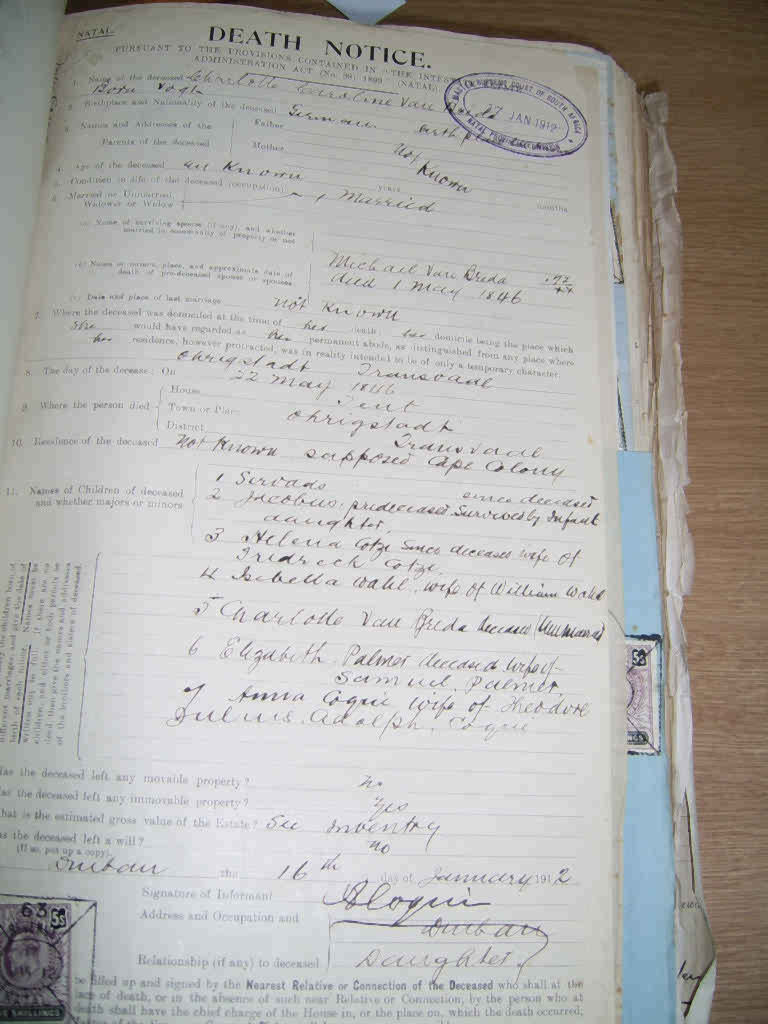 NATAL.
DEATH NOTICE.
PURSUANT TO THE PROVISIONS CONTAINED IN "THE INTEST
ADMINISTRATION ACT (No. 38) 1899" (NATAL)
1. Name of the deceased Charlotte Caroline Van Breda
Born Vogt
2. Birthplace and Nationality of the deceased German birth place
3. Names and Addresses of the Parents of the deceased
Father
Mother Not Known
MASTER SUPREME COURT OF SOUTH AFRICA
17 JAN 1912
NATAL
4. Age of the deceased un Known years months
5. Condition in life of the deceased (occupation)
6. Married or Unmarried Widower or Widow Married
(a) Name of surviving spouse (if any), and whether
married in community of property or not
(b) Names or names, place, and approximate date of
death of pre-deceased spouse or spouses
Michael Van Breda
died 1 May 1846
(c) Date and place of last marriage not Known
7. Where the deceased was domiciled at the time of her death, her domicile being the place which
She would have regarded as her permanent abode, as distinguished from any place where
her residence, however protracted, was in reality intended to be of only a temporary character.
Ohrigstadt Transvaal
8. The day of the decease: On 22 May 1846
9. Where the person died
House Tent
Town or Place Ohrigstadt
District Transvaal
10. Residence of the deceased Not Known supposed Cape Colony
11. Names of Children of deceased
and whether majors or minors
1 Servaas since deceased
2 Jacobus, predeceased Survived by Infant
daughter
3 Helena Cotze Since deceased wife of
Fridrech Cotze
4 Isibella Wahl, wife of William Wahl
5 Charlotte Van Breda deceased Unmarried
6 Elizabeth Palmer deceased wife of
Samuel Palmer
7 Anna Coqui wife of Theodore
Julius Adolph Coqui
different marriages and give the date of
of the brothers and sisters of deceased.
Has the deceased left any movable property? no
as the deceased left any immovable property? Yes
hat is the estimated gross value of the Estate? See Inventory
as the deceased left a will? no
(If so, put up a copy).
Durban the 16th day of January 1912
Signature of Informant A Coqui
Address and Occupation and Durban
Relationship (if any) to deceased Daughter
be filled up and signed by the Nearest Relative or Connection of the Deceased who shall at the
ace of death, or in the absence of such near Relative or Connection, by the person who at
death shall have the chief charge of the House in, or the place on, which the death occurred,
5s
SHILLINGS